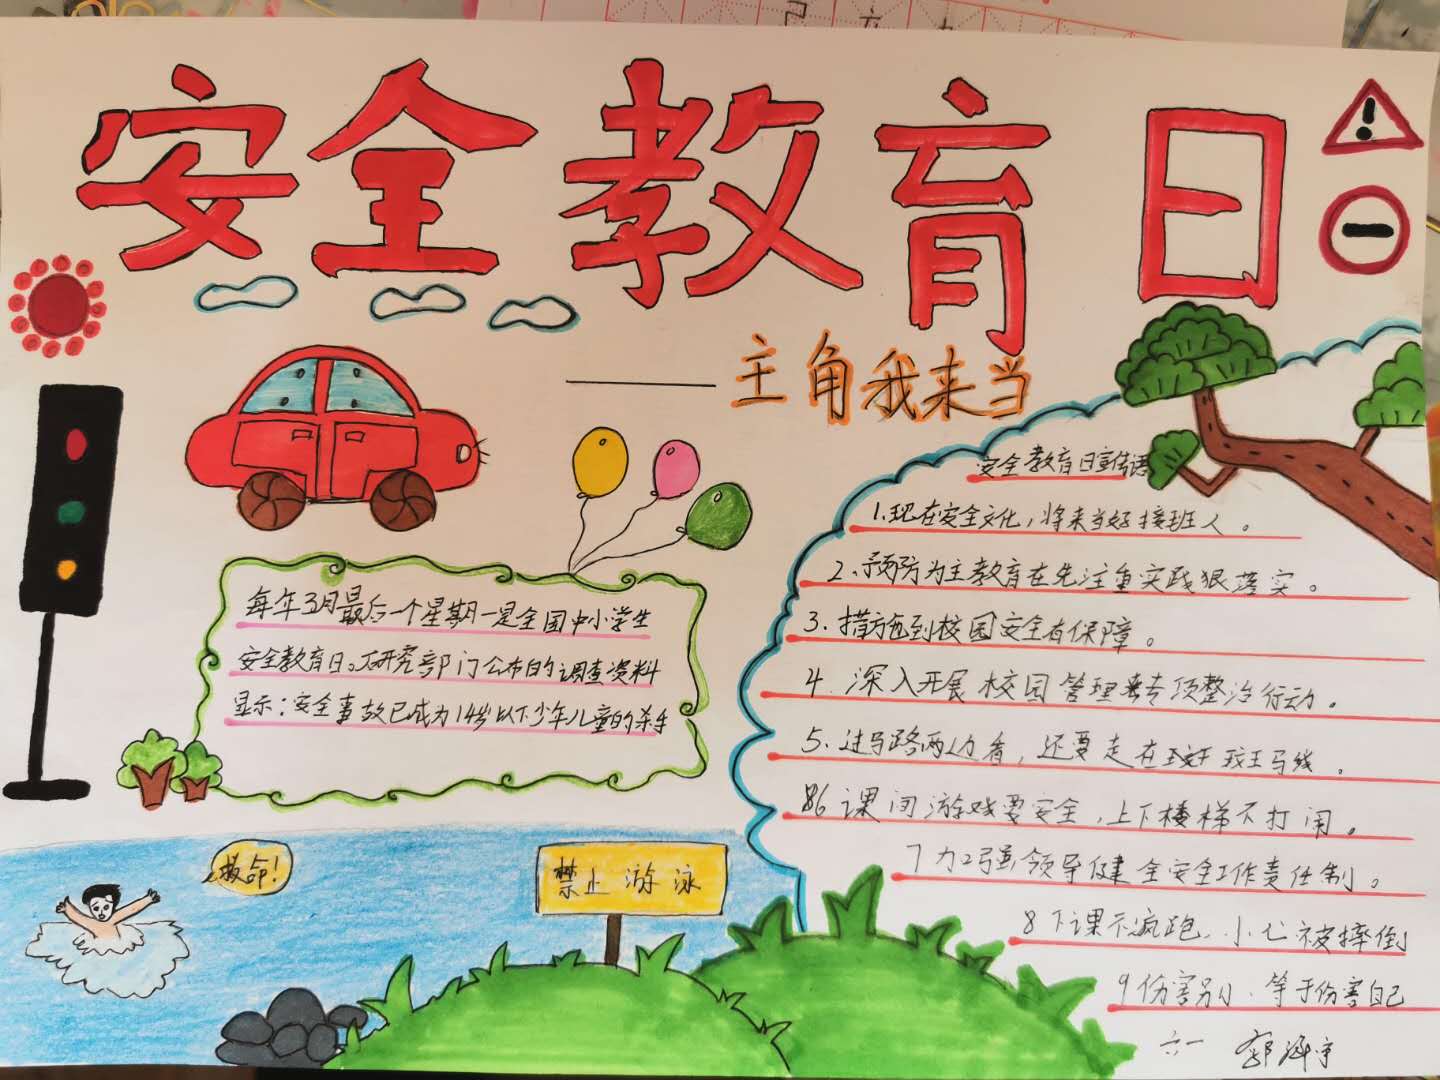 安全教育日
主角我来当
安全教育日宣传语
1.现在安全文化,将来当好接班人。
2.预防为主教育在先注重实践狠落实。
3.措施到校园安全有保障。
4.深入开展校园管理专项整治行动。
5.过马路两边看,还要走在斑马线。
6课间游戏要安全,上下楼梯不打闹。
7加强领导健全安全工作责任制。
8下课不疯跑、小心被摔倒
9伤害别人、等于伤害自己
六一
每年3月最后一个星期一是全国中小学生
安全教育日。研究部门公布的调查资料
显示:安全事故已成为14岁以下少年儿童的杀手
救命!
禁止游泳